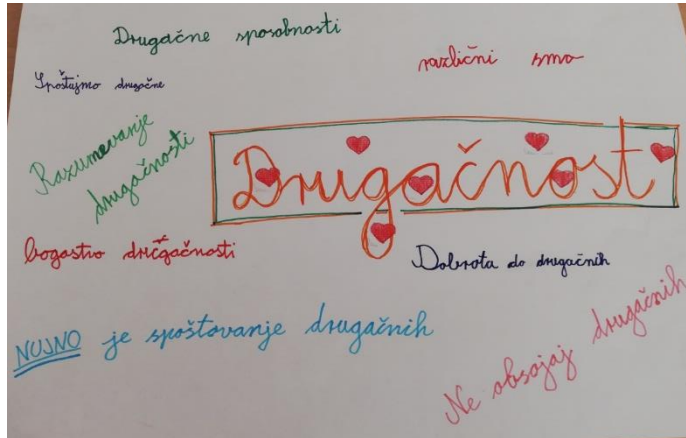 Drugačne sposobnosti
različni smo
Spoštujmo drugačne
Razumevanje
drugačnosti
Drugačnost
bogastvo drugačnosti
Dobrota do drugačnih
NUJNO je spoštovanje drugačnih
Ne obsojaj drugačnih